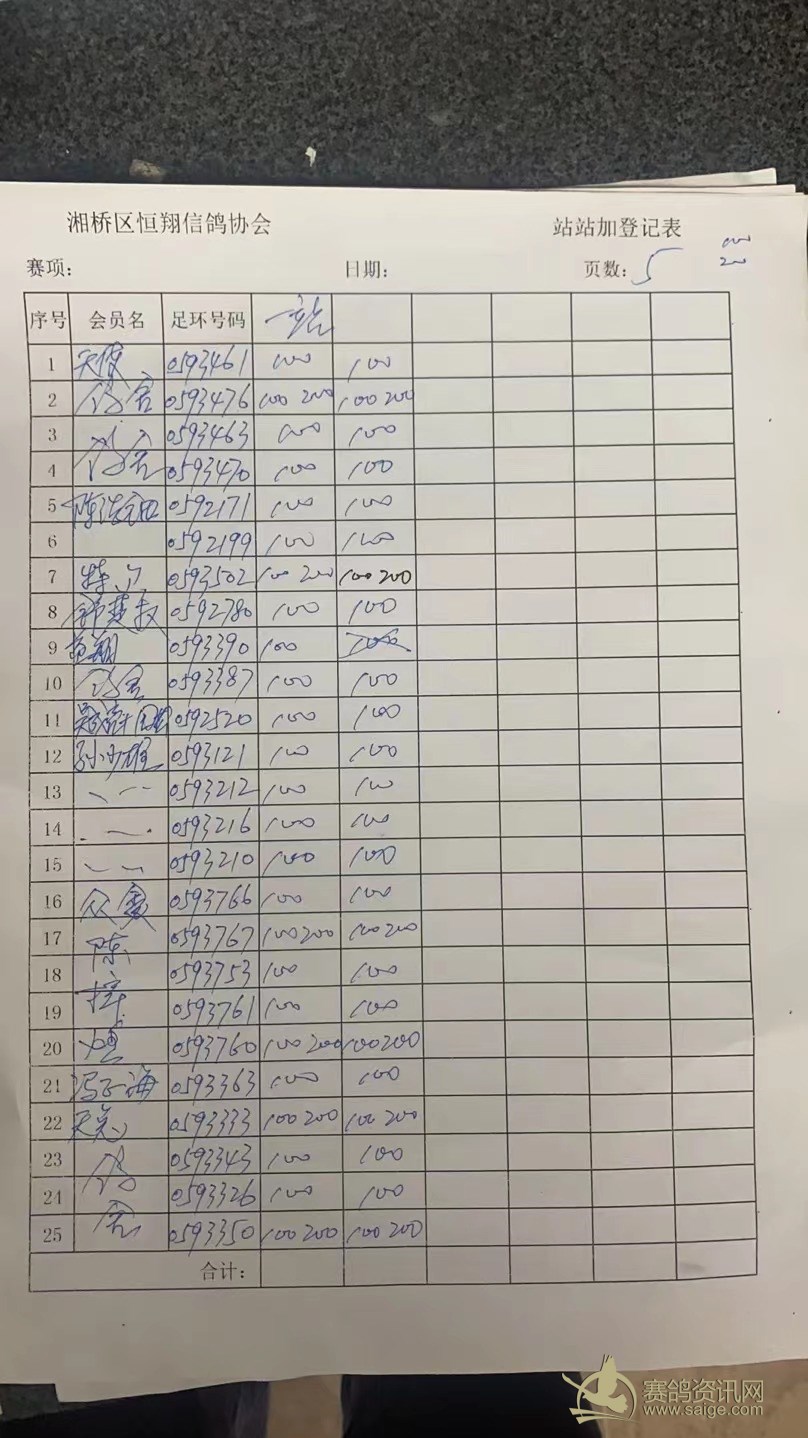 湘桥区恒翔信鸽协会 站站加登记表
100
200
赛项: 日期: 页数: 5
序号 会员名 足环号码 一站
1 天使 0593461 100 100
2 鸽舍 0593476 100 200 100 200
3 0593463 100 100
4 鸽舍 0593470 100 100
5 0592171 100 100
6 0592199 100 100
7 0593502 100 200 100 200
8 0592780 100 100
9 0593390 100 100
10 鸽舍 0593387 100 100
11 0592520 100 100
12 孙少雄 0593121 100 100
13 0593212 100 100
14 0593216 100 100
15 0593210 100 100
16 0593766 100 100
17 陈 0593767 100 200 100 200
18 0593753 100 100
19 0593761 100 100
20 0593760 100 200 100 200
21 冯子海 0593363 100 100
22 0593333 100 200 100 200
23 鸽 0593343 100 100
24 0593326 100 100
25 舍 0593350 100 200 100 200
合计:
赛鸽资讯网
www.saige.com